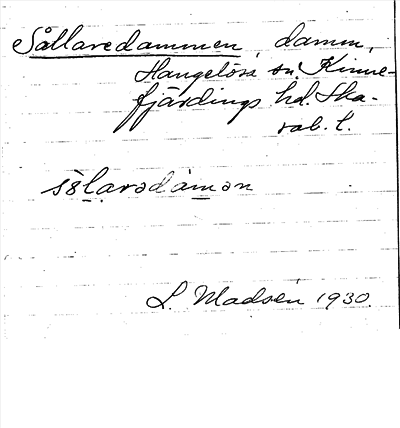 Sållaredammen, damm,
Hangelösa sn. Kinne-
fjärdings hd. Ska-
rab. l.
sålarədàmən
L. Madsén 1930.